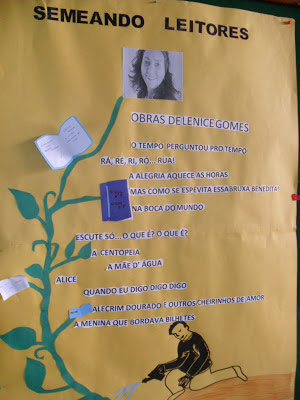 SEMEANDO LEITORES
OBRAS DELENICE GOMES
O TEMPO PERGUNTOU PRO TEMPO
RÁ, RÉ, RI, RÓ...RUA!
A ALEGRIA AQUECE AS HORAS
MAS COMO SE ESPEVITA ESSA BRUXA BENEDITA!
NA BOCA DO MUNDO
ESCUTE SÓ...O QUE É? O QUE É?
A CENTOPEIA
A MÃE D' ÁGUA
ALICE
QUANDO EU DIGO DIGO DIGO
ALECRIM DOURADO E OUTROS CHEIRINHOS DE AMOR
A MENINA QUE BORDAVA BILHETES